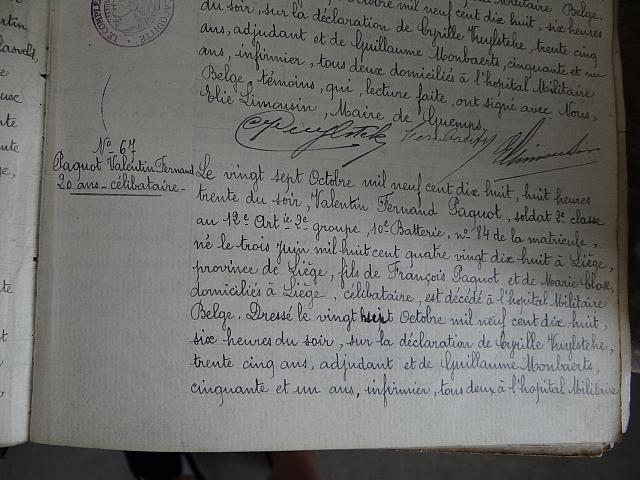 du soir, sur la déclaration de Cyrille Vuylsteke, trente cinq
ans, adjudant et de Guillaume Monbaerts, cinquante et un
ans, infirmier, tous deux domiciliés à l'hopital Militaire
Belge, témoins, qui, lecture faite, ont signé avec Nous,
Elie Limousin, Maire de Guemps.
No 67
Paquot Valentin Fernand
20 ans - célibataire -
Le vingt sept Octobre mil neuf cent dix huit, huit heures
trente du soir, Valentin Fernand Paquot, soldat 2e classe
au 12e Artie 2e groupe, 10e Batterie, no 84 de la matricule,
né le trois Juin mil huit cent quatre vingt dix huit à Liège,
province de Liège, fils de François Paquot et de Marie Close,
domiciliés à Liège, célibataire, est décédé à l'hopital Militaire
Belge. Dressé le vingt huit Octobre mil neuf cent dix huit,
six heures du soir, sur la déclaration de Cyrille Vuylsteke,
trente cinq ans, adjudant et de Guillaume Monbaerts,
cinquante et un ans, infirmier, tous deux à l'hopital Militaire